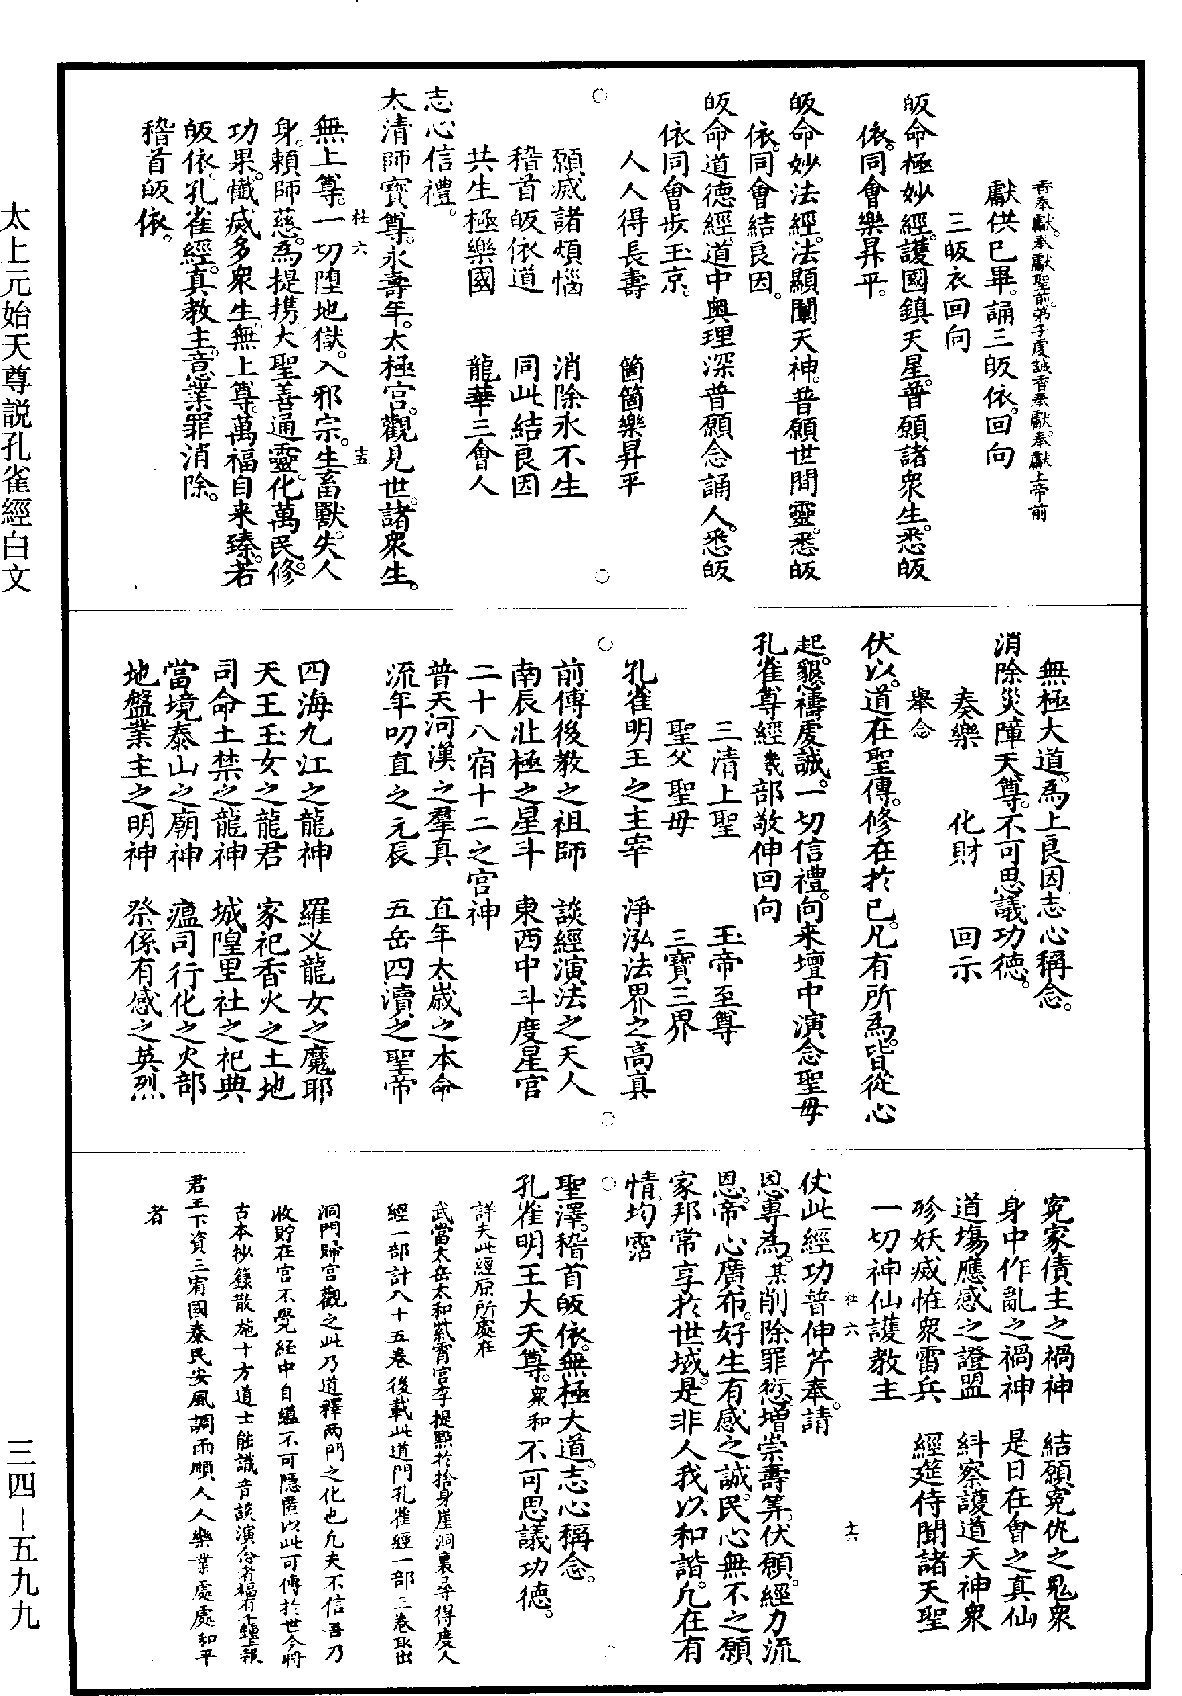 香奉獻。奉獻聖前。弟子虔誠香奉獻。奉獻上帝前
獻供已畢。誦三皈依。回向
三皈衣回向
皈命極妙經。護國鎮天星。普願諸衆生。悉皈
依。同會樂昇平。
皈命妙法經。法顯闡天神。普願世間靈。悉皈
依。同會結良因。
皈命道德經。道中奧理深。普願念誦人。悉皈
依同會步玉京。
人人得長壽　箇箇樂昇平
○　○
願滅諸煩惱　消除永不生
稽首皈依道　同此結良因
共生極樂國　龍華三會人
志心信禮。
太清師寶尊。永壽年。太極宮。觀見世。諸衆生。
杜六　十五
無上尊。一切墮地獄。入邪宗。生畜獸。失人
身。賴師慈。爲提携。大聖善通靈。化萬民。修
功果。懺滅多衆生。無上尊。萬福自来臻。若
皈依。孔雀經。真教主。意業罪消除。
稽首皈依。
無極大道。爲上良因。志心稱念。
消除災障天尊。不可思議功德。
奏樂　化財　回示
舉念
伏以。道在聖傳。修在於己。凡有所爲。皆從心
起。懇禱虔誠。一切信禮。向来壇中演念聖母
孔雀尊經幾部敬伸回向
三清上聖　玉帝至尊
聖父聖母　三寶三界
孔雀明王之主宰　淨泓法界之高真
○　○
前傳後教之祖師　談經演法之天人
南辰北極之星斗　東西中斗度星官
二十八宿十二之宮神
普天河漢之羣真　直年太歲之本命
流年叨直之元辰　五岳四瀆之聖帝
四海九江之龍神　羅义龍女之魔耶
天王玉女之龍君　家祀香火之土地
司命土禁之龍神　城隍里社之祀典
當境泰山之廟神　瘟司行化之火部
地盤業主之明神　祭係有感之英烈
冤家債主之禍神　結願冤仇之鬼衆
身中作亂之禍神　是日在會之真仙
道塲應感之證盟　糾察護道天神衆
殄妖滅恠衆雷兵　經筵侍聞諸天聖
一切神仙護教主
杜六　十六
仗此經功普伸芹奉。請
恩尊爲。某削除罪愆。增崇壽筭。伏願。經力流
恩。帝心廣布。好生有感之誠。民心無不之願
家邦常享於世域。是非人我以和諧。凡在有
情。均霑
○
聖澤。稽首皈依。無極大道。志心稱念。
孔雀明王大天尊。衆和不可思議功德。
詳夫此經原所處在
武當太岳太和紫霄宮李提點於捨身崖洞裏尋得度人
經一部計八十五卷後載此道門孔雀經一部三卷取出
洞門歸宮觀之此乃道釋两門之化也凡夫不信吾乃
收貯在宮不覺經中自
古本抄錄散施十方道士能識音談演念者福有
君王下資三宥國泰民安風調雨順人人樂業處處和平
者
太上元始天尊説孔雀經白文
三四－五九九